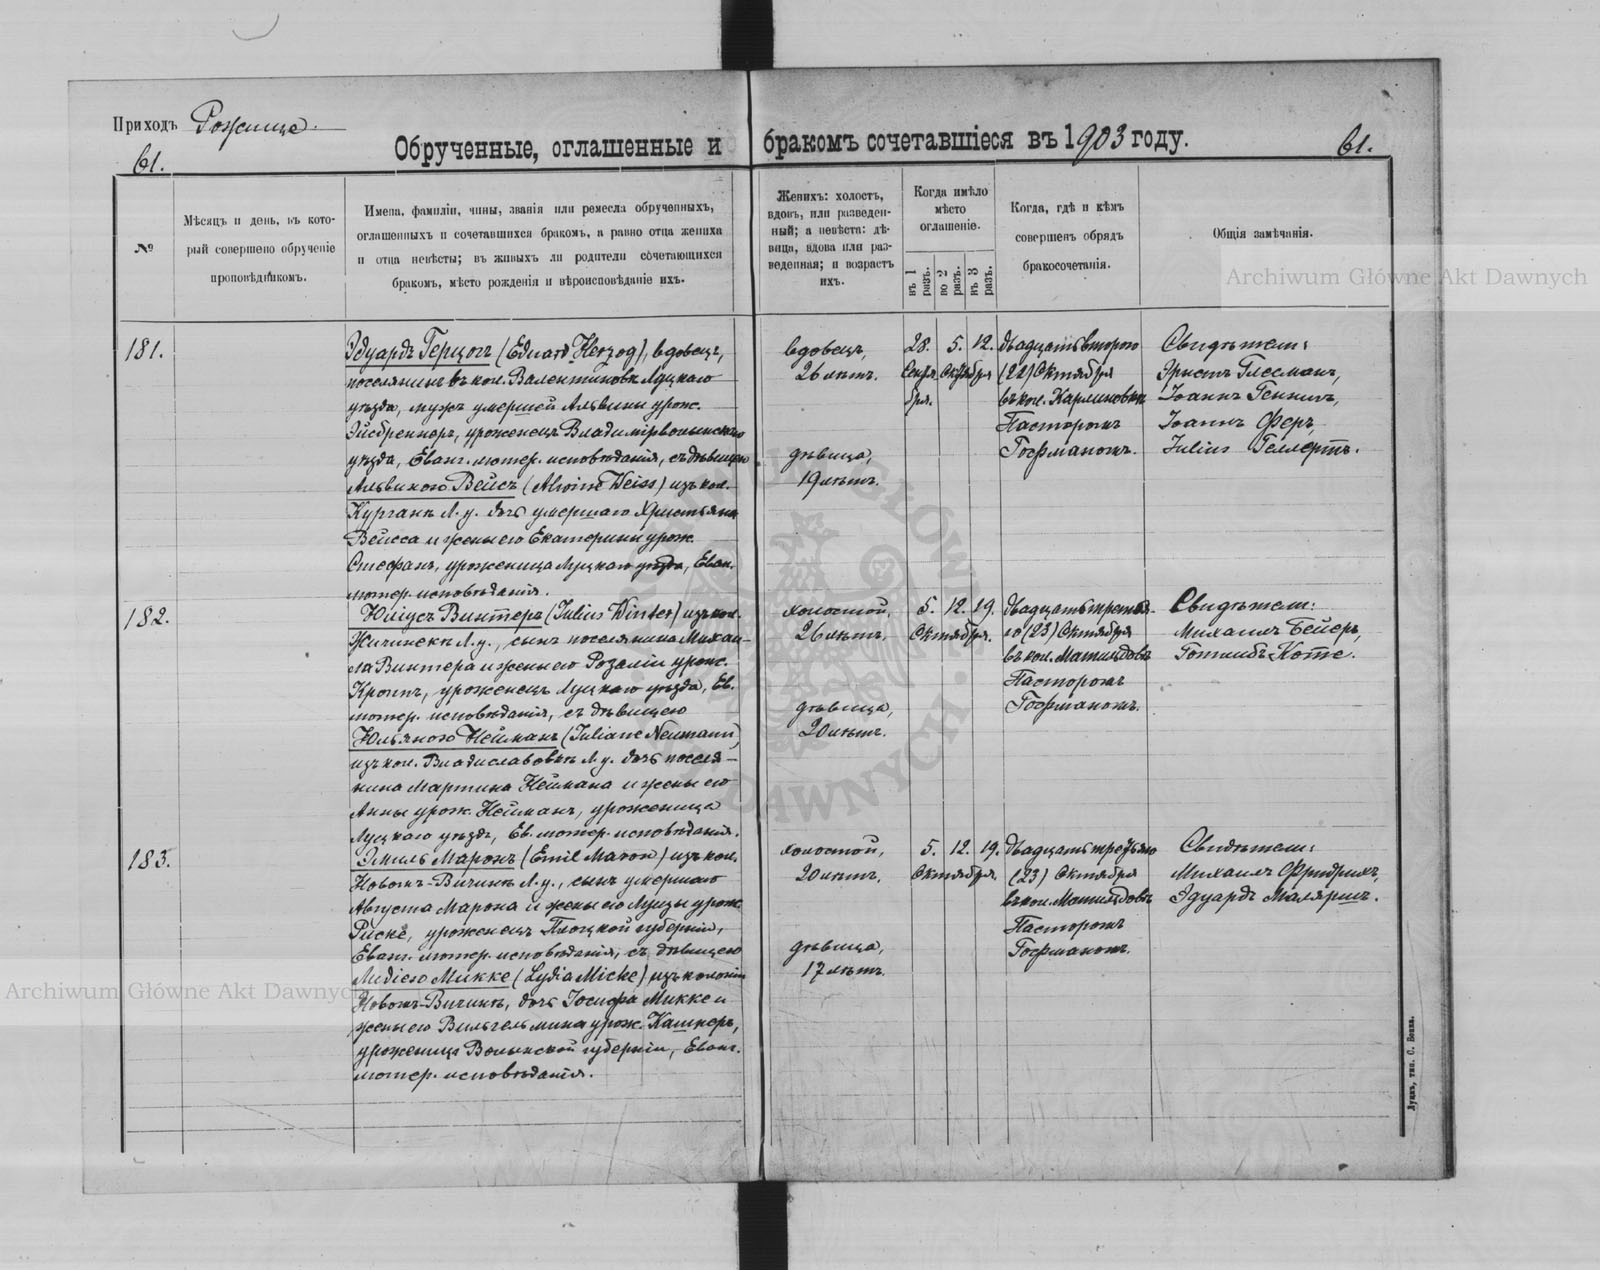 Приходъ Рожище.
61.
Обрученные, оглашенные и бракомъ сочетавшіеся въ 1903 году.
61.
№
Мѣсяцъ и день, въ кото-
рый совершено обрученіе
проповѣдникомъ.
Имена, фамиліи, чины, званія или ремесла обрученныхъ,
оглашенныхъ и сочетавшихся бракомъ, а равно отца жениха
и отца невѣсты; въ живыхъ ли родители сочетающихся
бракомъ, мѣсто рожденія и вѣроисповѣданіе ихъ.
Женихъ: холостъ,
вдовъ, или разведен-
ный; а невѣста: дѣ-
вица, вдова или раз-
веденная; и возрастъ
ихъ.
Когда имѣло
мѣсто
оглашеніе.
въ 1 разъ.
во 2 разъ.
въ 3 разъ.
Когда, гдѣ и кѣмъ
совершенъ обрядъ
бракосочетанія.
Общія замѣчанія.
181.
Эдуардъ Герцогъ (Eduard Herzog), вдовецъ,
поселянинъ въ кол. Валентиновкѣ Луцкаго
уѣзда, мужъ умершей Альвины урож.
Эйсбреннеръ, уроженецъ Владимірволынскаго
уѣзда, Еванг. лютер. исповѣданія, съ дѣвицею
Альвиною Вейсъ (Alwine Weiss) изъ кол.
Курганъ Л. у. дочь умершаго Христьяна
Вейсса и жены его Екатерины урож.
Стефанъ, уроженица Луцкаго уѣзда, Еван.
лютер. исповѣданія.
вдовецъ,
26 лѣтъ.
дѣвица,
19 лѣтъ.
28. 5. 12.
Сентя Октября
бря.
двадцать второго
(22) Октября
въ кол. Карлиновкѣ
Пасторомъ
Гофманомъ.
Свидѣтели:
Эрнстъ Глесманъ,
Іоаннъ Геннигъ,
Іоаннъ Феръ,
Julius Геллертъ.
182.
Юліусъ Винтеръ (Julius Winter) изъ кол.
Л. у., сынъ поселянина Михаи-
ла Винтера и жены его Розаліи урож.
Кроттъ, уроженецъ Луцкаго уѣзда, Ев.
лютер. исповѣданія, съ дѣвицею
Юльяною Нейманъ (Juliane Neumann)
изъ кол. Владиславовкѣ Л. у. дочь поселя-
нина Мартина Неймана и жены его
Анны урож. Нейманъ, уроженица
Луцкаго уѣзда, Ев. лютер. исповѣданія.
холостой,
26 лѣтъ.
дѣвица,
20 лѣтъ.
5. 12. 19.
Октября.
двадцать третья-
го (23) Октября
въ кол. Матильдовкѣ
Пасторомъ
Гофманомъ.
Свидѣтели:
Михаилъ Бейеръ,
Готлибъ Котте.
183.
Эмиль Маронъ (Emil Maron) изъ кол.
Новомъ-Вичинѣ Л. у., сынъ умершаго
Августа Марона и жены его Луизы урож.
Риске, уроженецъ Плоцкой губерніи,
Еванг. лютер. исповѣданія, съ дѣвицею
Лидіею Микке (Lydia Micke) изъ колоніи
Новомъ-Вичинѣ, дочь Іосифа Микке и
жены его Вильгельмина урож. Кашнеръ,
уроженица Волынской губерніи, Еванг.
лютер. исповѣданія.
холостой,
20 лѣтъ.
дѣвица,
17 лѣтъ.
5. 12. 19.
Октября.
двадцать третьяго
(23) Октября
въ кол. Матильдовкѣ
Пасторомъ
Гофманомъ.
Свидѣтели:
Михаилъ Фридрихъ,
Эдуардъ Маляришъ.
Луцкъ, тип. С. Бонка.
Archiwum Główne Akt Dawnych
Archiwum Główne Akt Dawnych